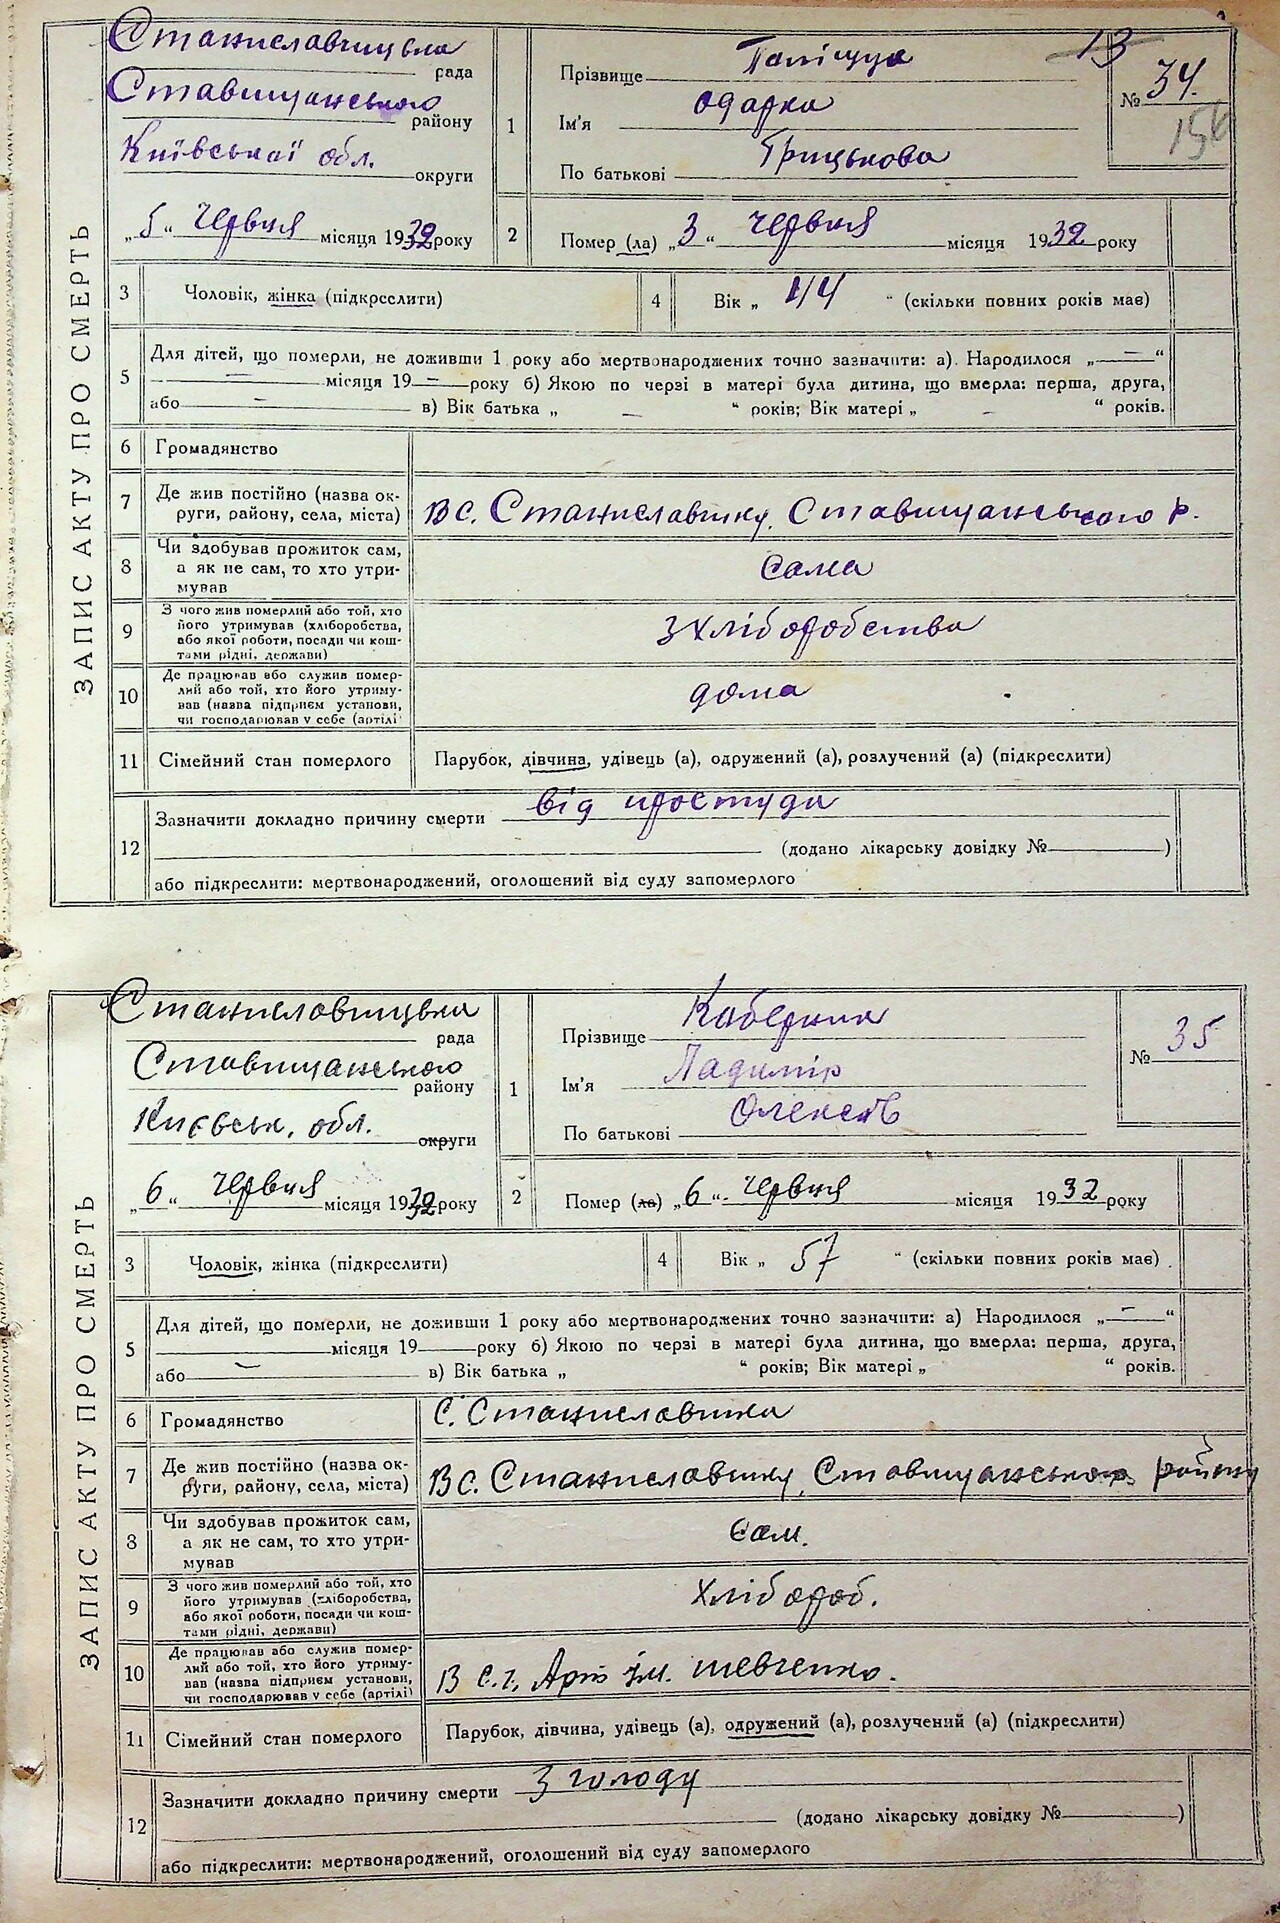 ЗАПИС АКТУ ПРО СМЕРТЬ
Станиславчицька
рада
Ставищанського
району
Київської обл.
округи
„5“ червня місяця 1932 року
1
Прізвище
Ім'я Одарка
По батькові Грицькова
13
№ 34.
156
2
Помер (ла) „3“ червня місяця 1932 року
3
Чоловік, жінка (підкреслити)
4
Вік „ 14 “ (скільки повних років має)
5
Для дітей, що померли, не доживши 1 року або мертвонароджених точно зазначити: а) Народилося „—“
— місяця 19 — року б) Якою по черзі в матері була дитина, що вмерла: перша, друга,
або — в) Вік батька „ — “ років; Вік матері „ — “ років.
6
Громадянство
7
Де жив постійно (назва ок-
руги, району, села, міста)
В с. Станиславчику, Ставищанського р.
8
Чи здобував прожиток сам,
а як не сам, то хто утри-
мував
сама
9
З чого жив померлий або той, хто
його утримував (хліборобства,
або якої роботи, посади чи кош-
тами рідні, держави)
З хліборобства
10
Де працював або служив помер-
лий або той, хто його утриму-
вав (назва підприєм установи,
чи господарював у себе (артілі)
дома
11
Сімейний стан померлого
Парубок, дівчина, удівець (а), одружений (а), розлучений (а) (підкреслити)
12
Зазначити докладно причину смерти від простуди
(додано лікарську довідку № )
або підкреслити: мертвонароджений, оголошений від суду запомерлого
ЗАПИС АКТУ ПРО СМЕРТЬ
Станиславчицька
рада
Ставищанського
району
Києвськ. обл.
округи
„6“ червня місяця 1932 року
1
Прізвище Каберник
Ім'я Ладимір
По батькові Олексів
№ 35
2
Помер (ла) „6“ червня місяця 1932 року
3
Чоловік, жінка (підкреслити)
4
Вік „ 57 “ (скільки повних років має)
5
Для дітей, що померли, не доживши 1 року або мертвонароджених точно зазначити: а) Народилося „—“
місяця 19 року б) Якою по черзі в матері була дитина, що вмерла: перша, друга,
або — в) Вік батька „ “ років; Вік матері „ “ років.
6
Громадянство
С. Станиславчика
7
Де жив постійно (назва ок-
руги, району, села, міста)
В с. Станиславчику, Ставищанського району
8
Чи здобував прожиток сам,
а як не сам, то хто утри-
мував
сам.
9
З чого жив померлий або той, хто
його утримував (хліборобства,
або якої роботи, посади чи кош-
тами рідні, держави)
Хлібороб.
10
Де працював або служив помер-
лий або той, хто його утриму-
вав (назва підприєм установи,
чи господарював у себе (артілі)
В с.г. Арт ім. Шевченко.
11
Сімейний стан померлого
Парубок, дівчина, удівець (а), одружений (а), розлучений (а) (підкреслити)
12
Зазначити докладно причину смерти З голоду
(додано лікарську довідку № )
або підкреслити: мертвонароджений, оголошений від суду запомерлого